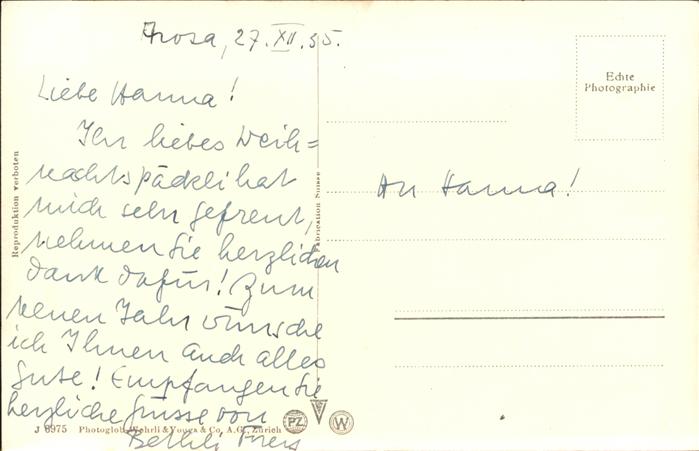 Arosa, 27.XII.35.
Liebe Hanna!
Ihr liebes Weih=
nachtspäckli hat
mich sehr gefreut,
nehmen Sie herzlichen
Dank dafür! Zum
neuen Jahr wünsche
ich Ihnen auch alles
Gute! Empfangen Sie
herzliche Grüsse von
Bethli
An Hanna!
Echte
Photographie
Reproduktion verboten
Fabrication Suisse
J 8975 Photoglob-Wehrli & Vouga & Co. A.G., Zürich
PZ
W